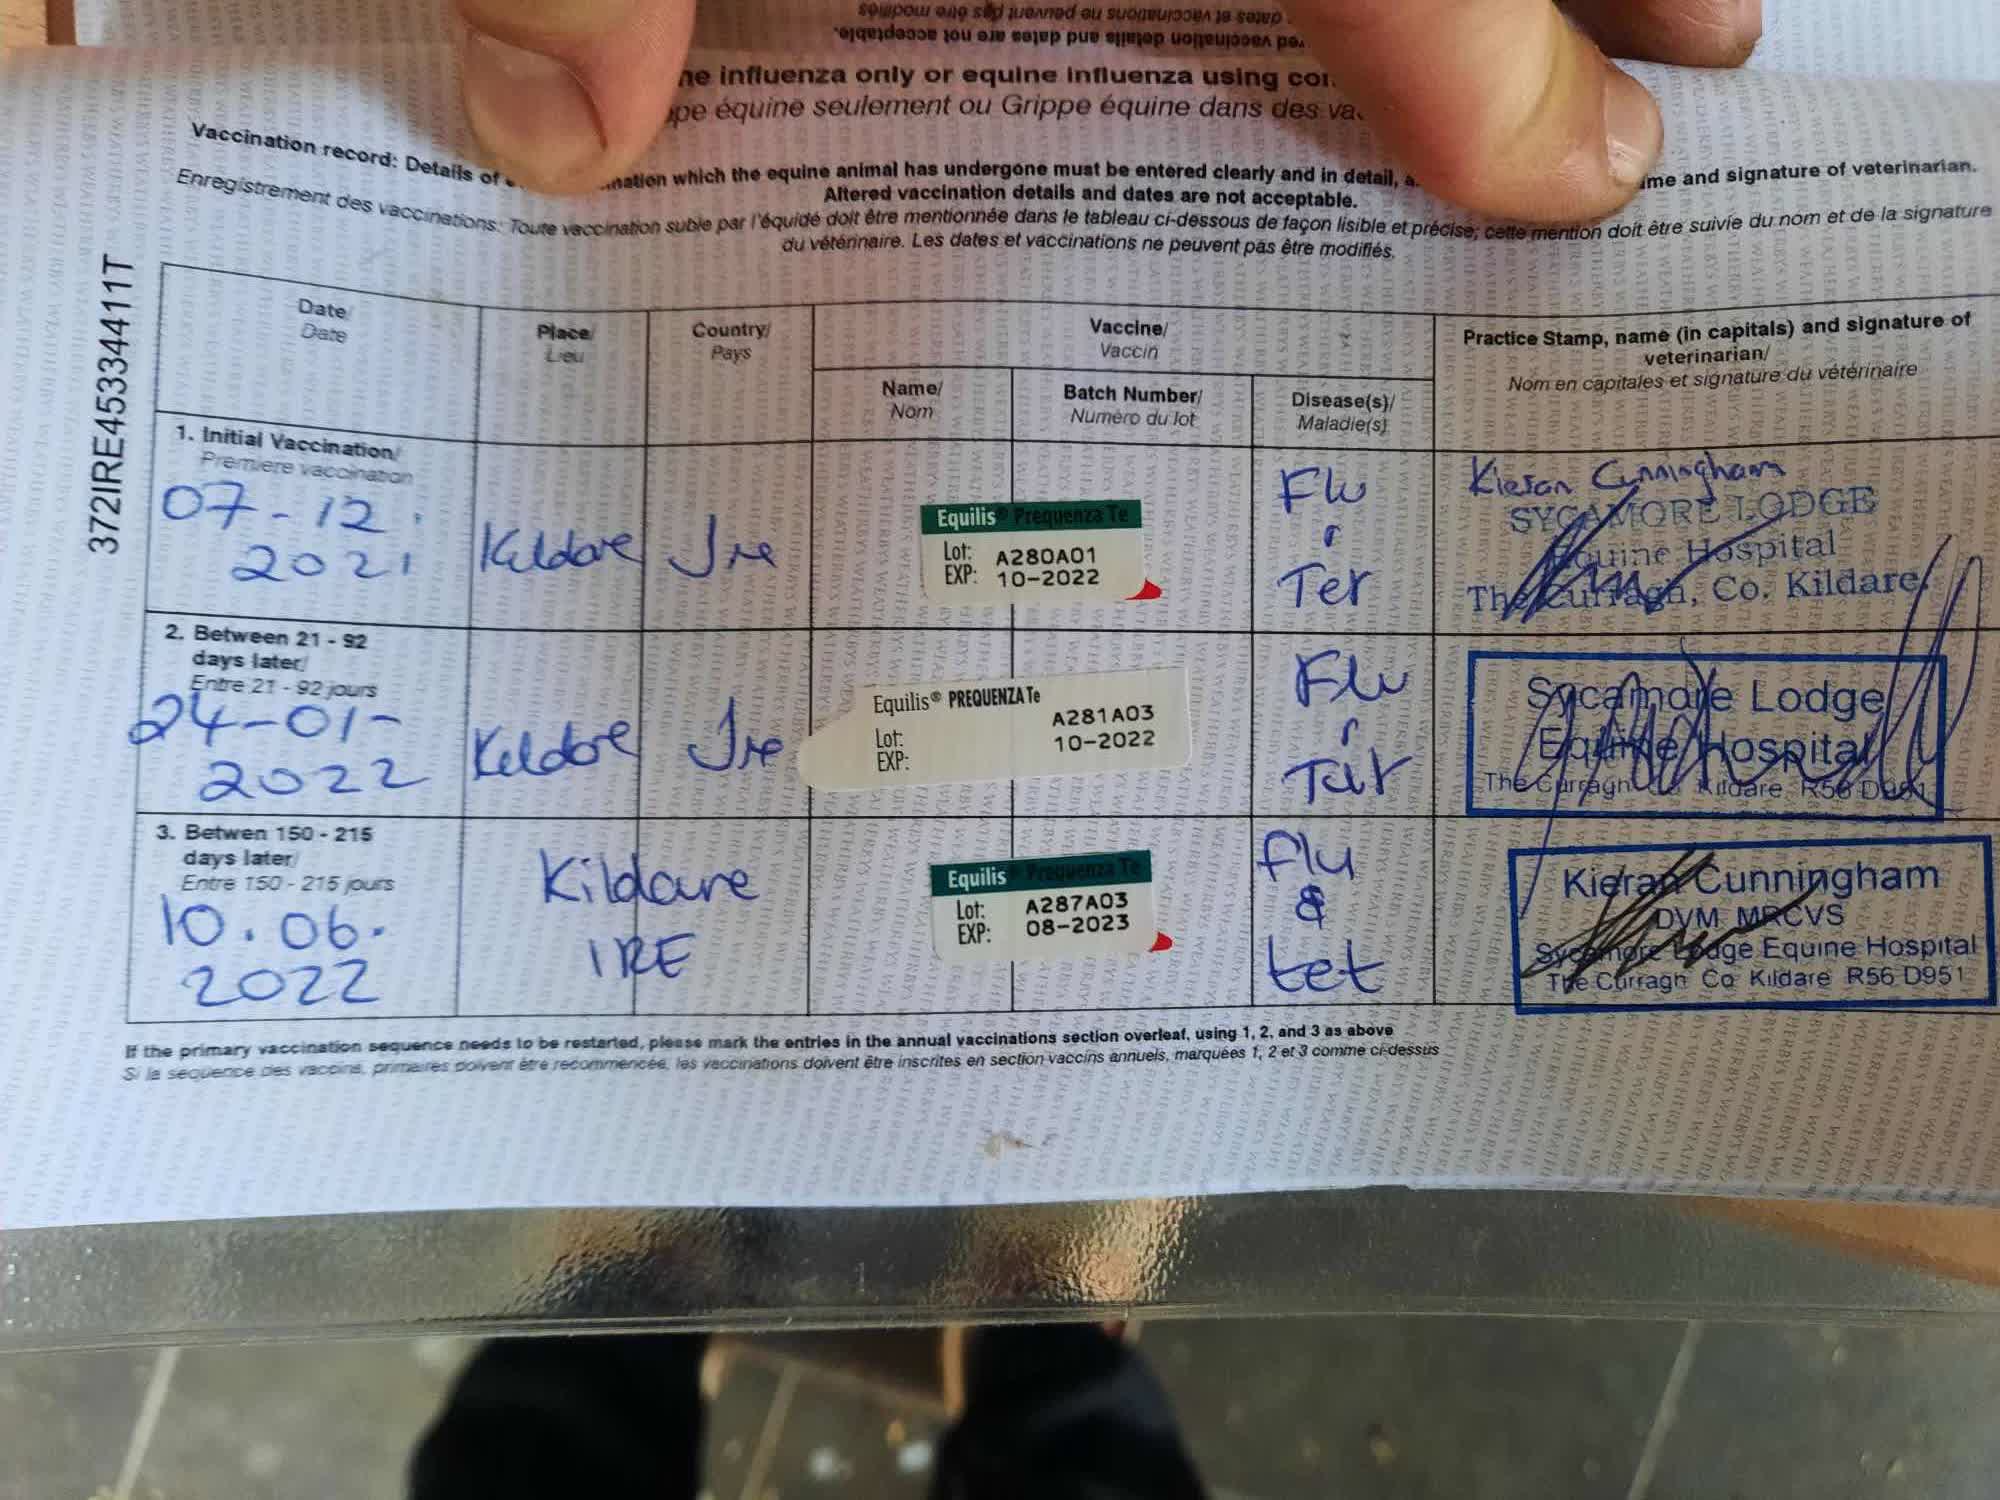 dates et vaccinations ne peuvent pas être modifiés
vaccination details and dates are not acceptable.
influenza only or equine influenza using
équine seulement ou Grippe équine dans des
Vaccination record: Details of which the equine animal has undergone must be entered clearly and in detail, and signature of veterinarian.
Altered vaccination details and dates are not acceptable.
Enregistrement des vaccinations: Toute vaccination subie par l'équidé doit être mentionnée dans le tableau ci-dessous de façon lisible et précise; cette mention doit être suivie du nom et de la signature
du vétérinaire. Les dates et vaccinations ne peuvent pas être modifiés.
372IRE45334411T
Date/
Date
Place/
Lieu
Country/
Pays
Vaccine/
Vaccin
Name/
Nom
Batch Number/
Numéro du lot
Disease(s)/
Maladie(s)
Practice Stamp, name (in capitals) and signature of
veterinarian/
Nom en capitales et signature du vétérinaire
1. Initial Vaccination/
Première vaccination
07-12.
2021
Kildare
Ire
Equilis® Prequenza Te
Lot: A280A01
EXP: 10-2022
Flu
Tet
Kieran Cunningham
SYCAMORE LODGE
Equine Hospital
The Curragh, Co. Kildare.
2. Between 21 - 92
days later/
Entre 21 - 92 jours
24-01-
2022
Kildare
Ire
Equilis® PREQUENZA Te
Lot: A281A03
EXP: 10-2022
Flu
Tet
Sycamore Lodge
Equine Hospital
The Curragh Co Kildare R56 D951
3. Betwen 150 - 215
days later/
Entre 150 - 215 jours
10.06.
2022
Kildare
IRE
Equilis® Prequenza Te
Lot: A287A03
EXP: 08-2023
Flu
&
tet
Kieran Cunningham
DVM MRCVS
Sycamore Lodge Equine Hospital
The Curragh Co Kildare R56 D951
If the primary vaccination sequence needs to be restarted, please mark the entries in the annual vaccinations section overleaf, using 1, 2, and 3 as above
Si la séquence des vaccins, primaires doivent être recommencée, les vaccinations doivent être inscrites en section vaccins annuels, marquées 1, 2 et 3 comme ci-dessus